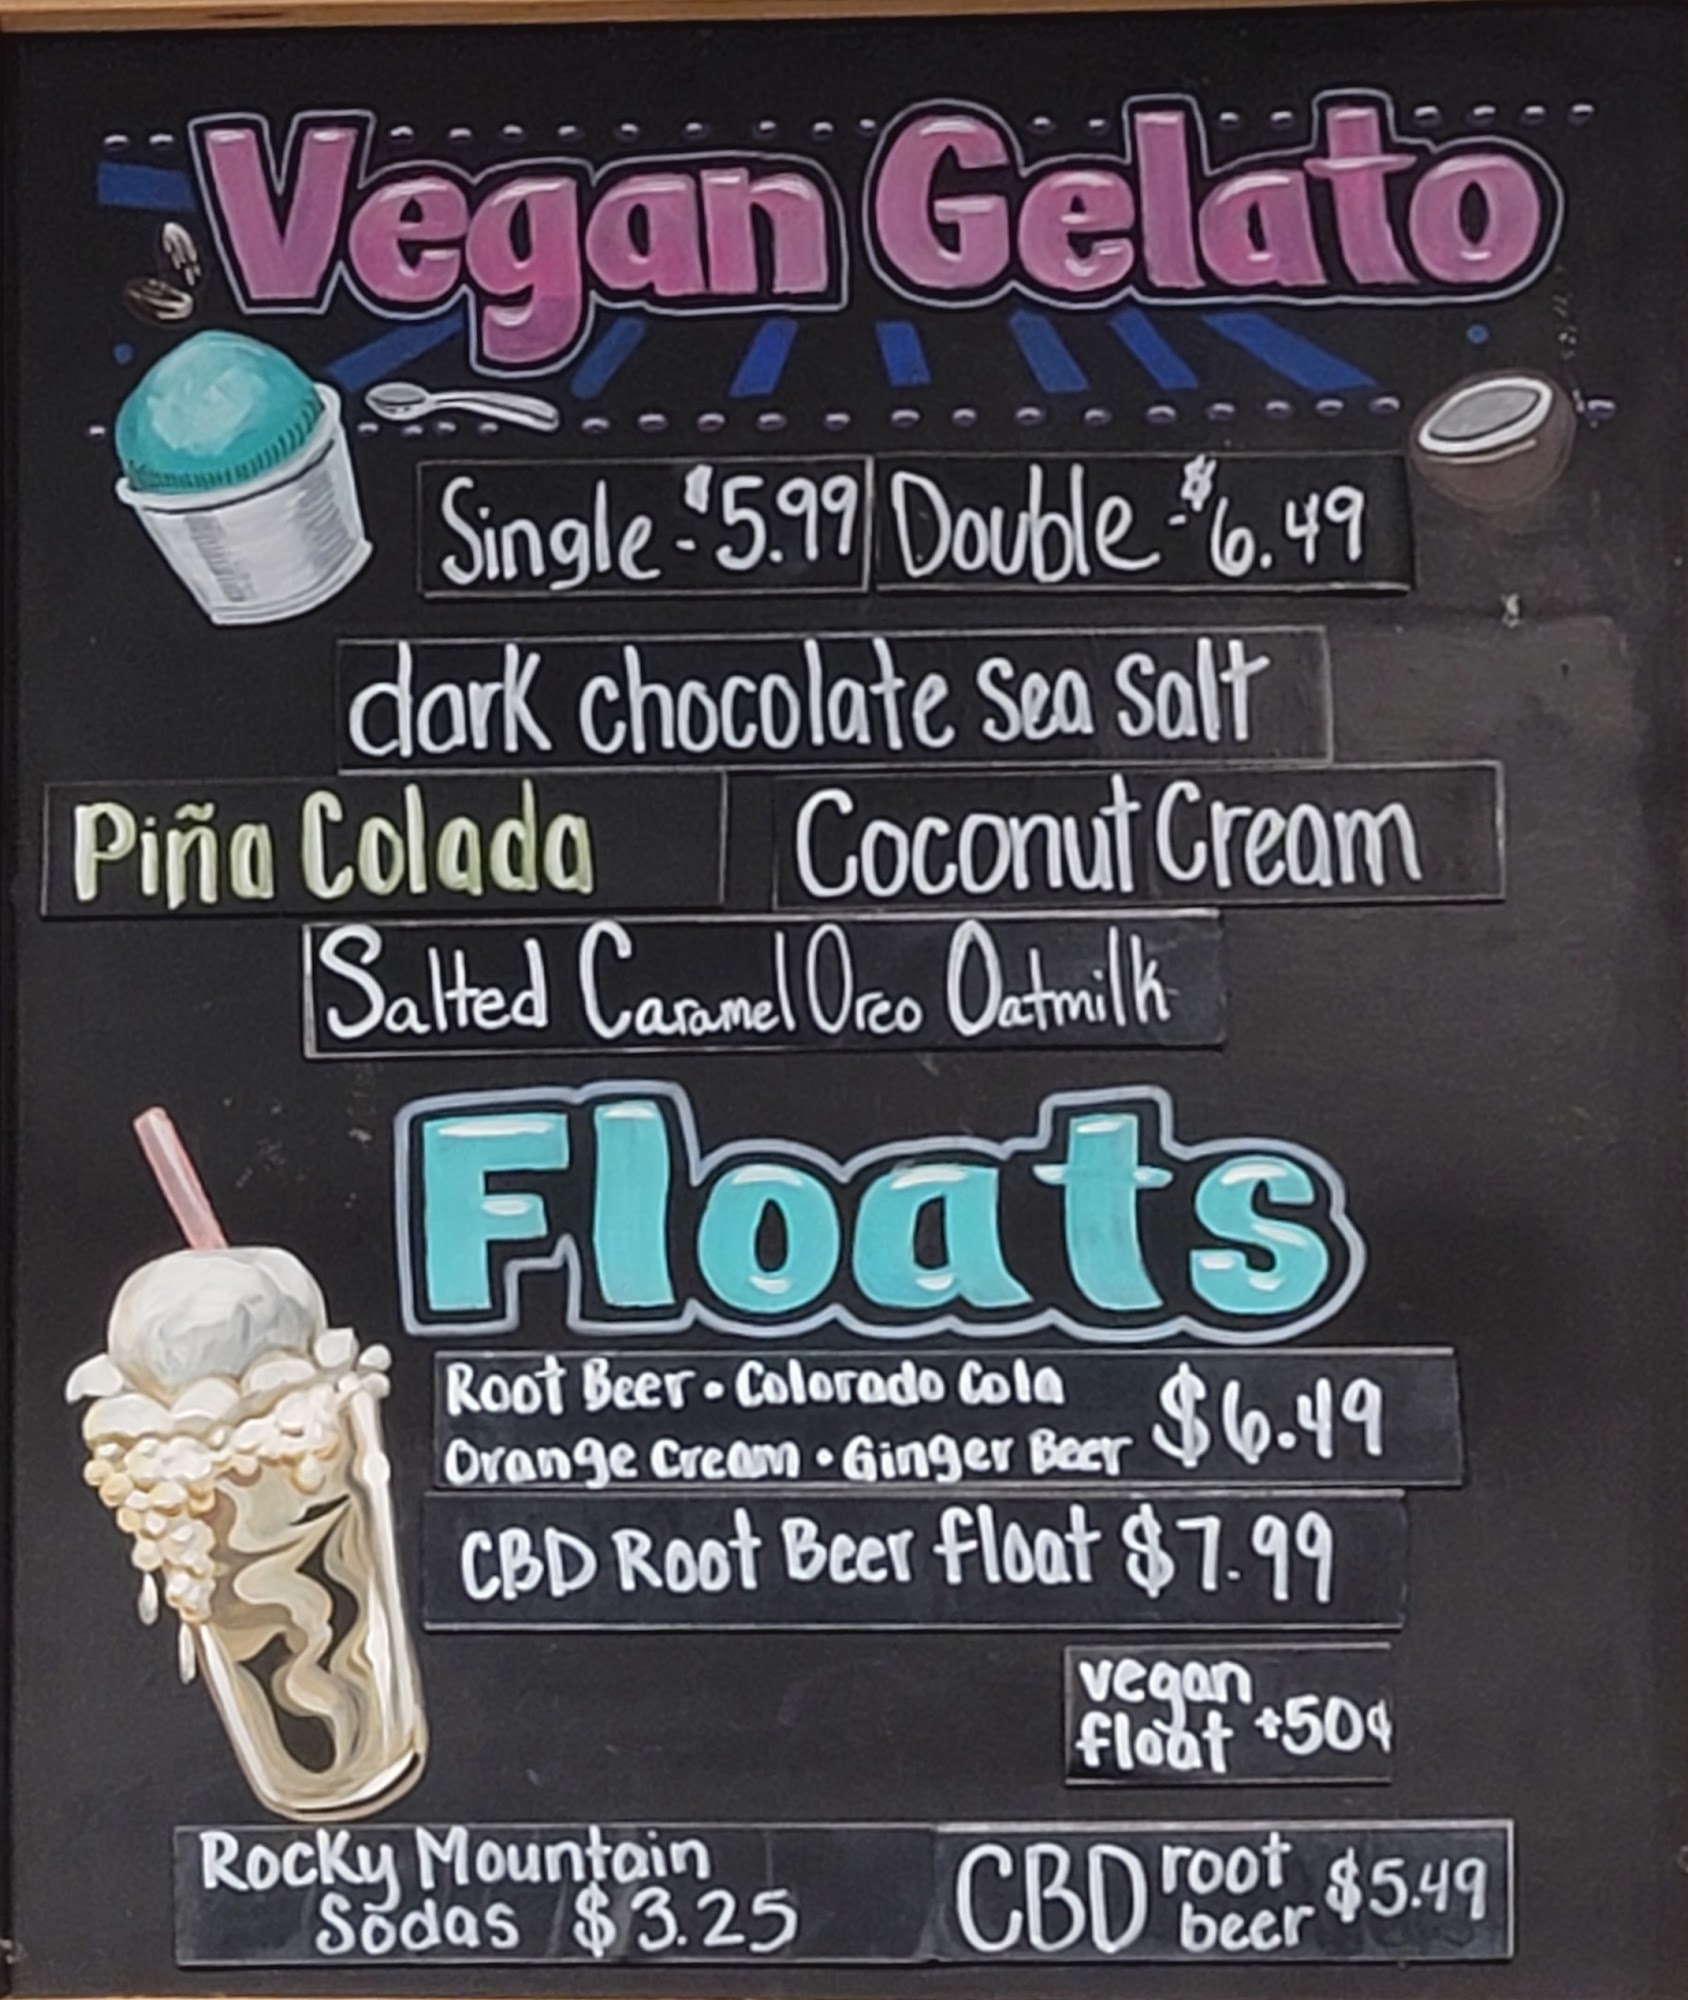 Vegan Gelato
Single - $5.99 Double - $6.49
dark chocolate sea salt
Piña Colada Coconut Cream
Salted Caramel Oreo Oatmilk
Floats
Root Beer • Colorado Cola
Orange Cream • Ginger Beer $6.49
CBD Root Beer float $7.99
vegan
float +50¢
Rocky Mountain
Sodas $3.25
CBD root
beer $5.49